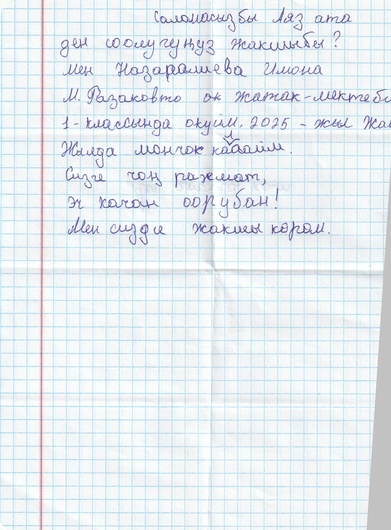 Саламатсызбы Аяз ата
ден соолугуңуз жакшыбы?
Мен Назаралиева Имона
М. Разаковто ок жатак-мектеби
1-классында окуйм. 2025 - жыл Жаң
Жылда мончок каалайм.
Сизге чоң рахмат,
Эч качан оорубаң!
Мен сизди жакшы көрөм.